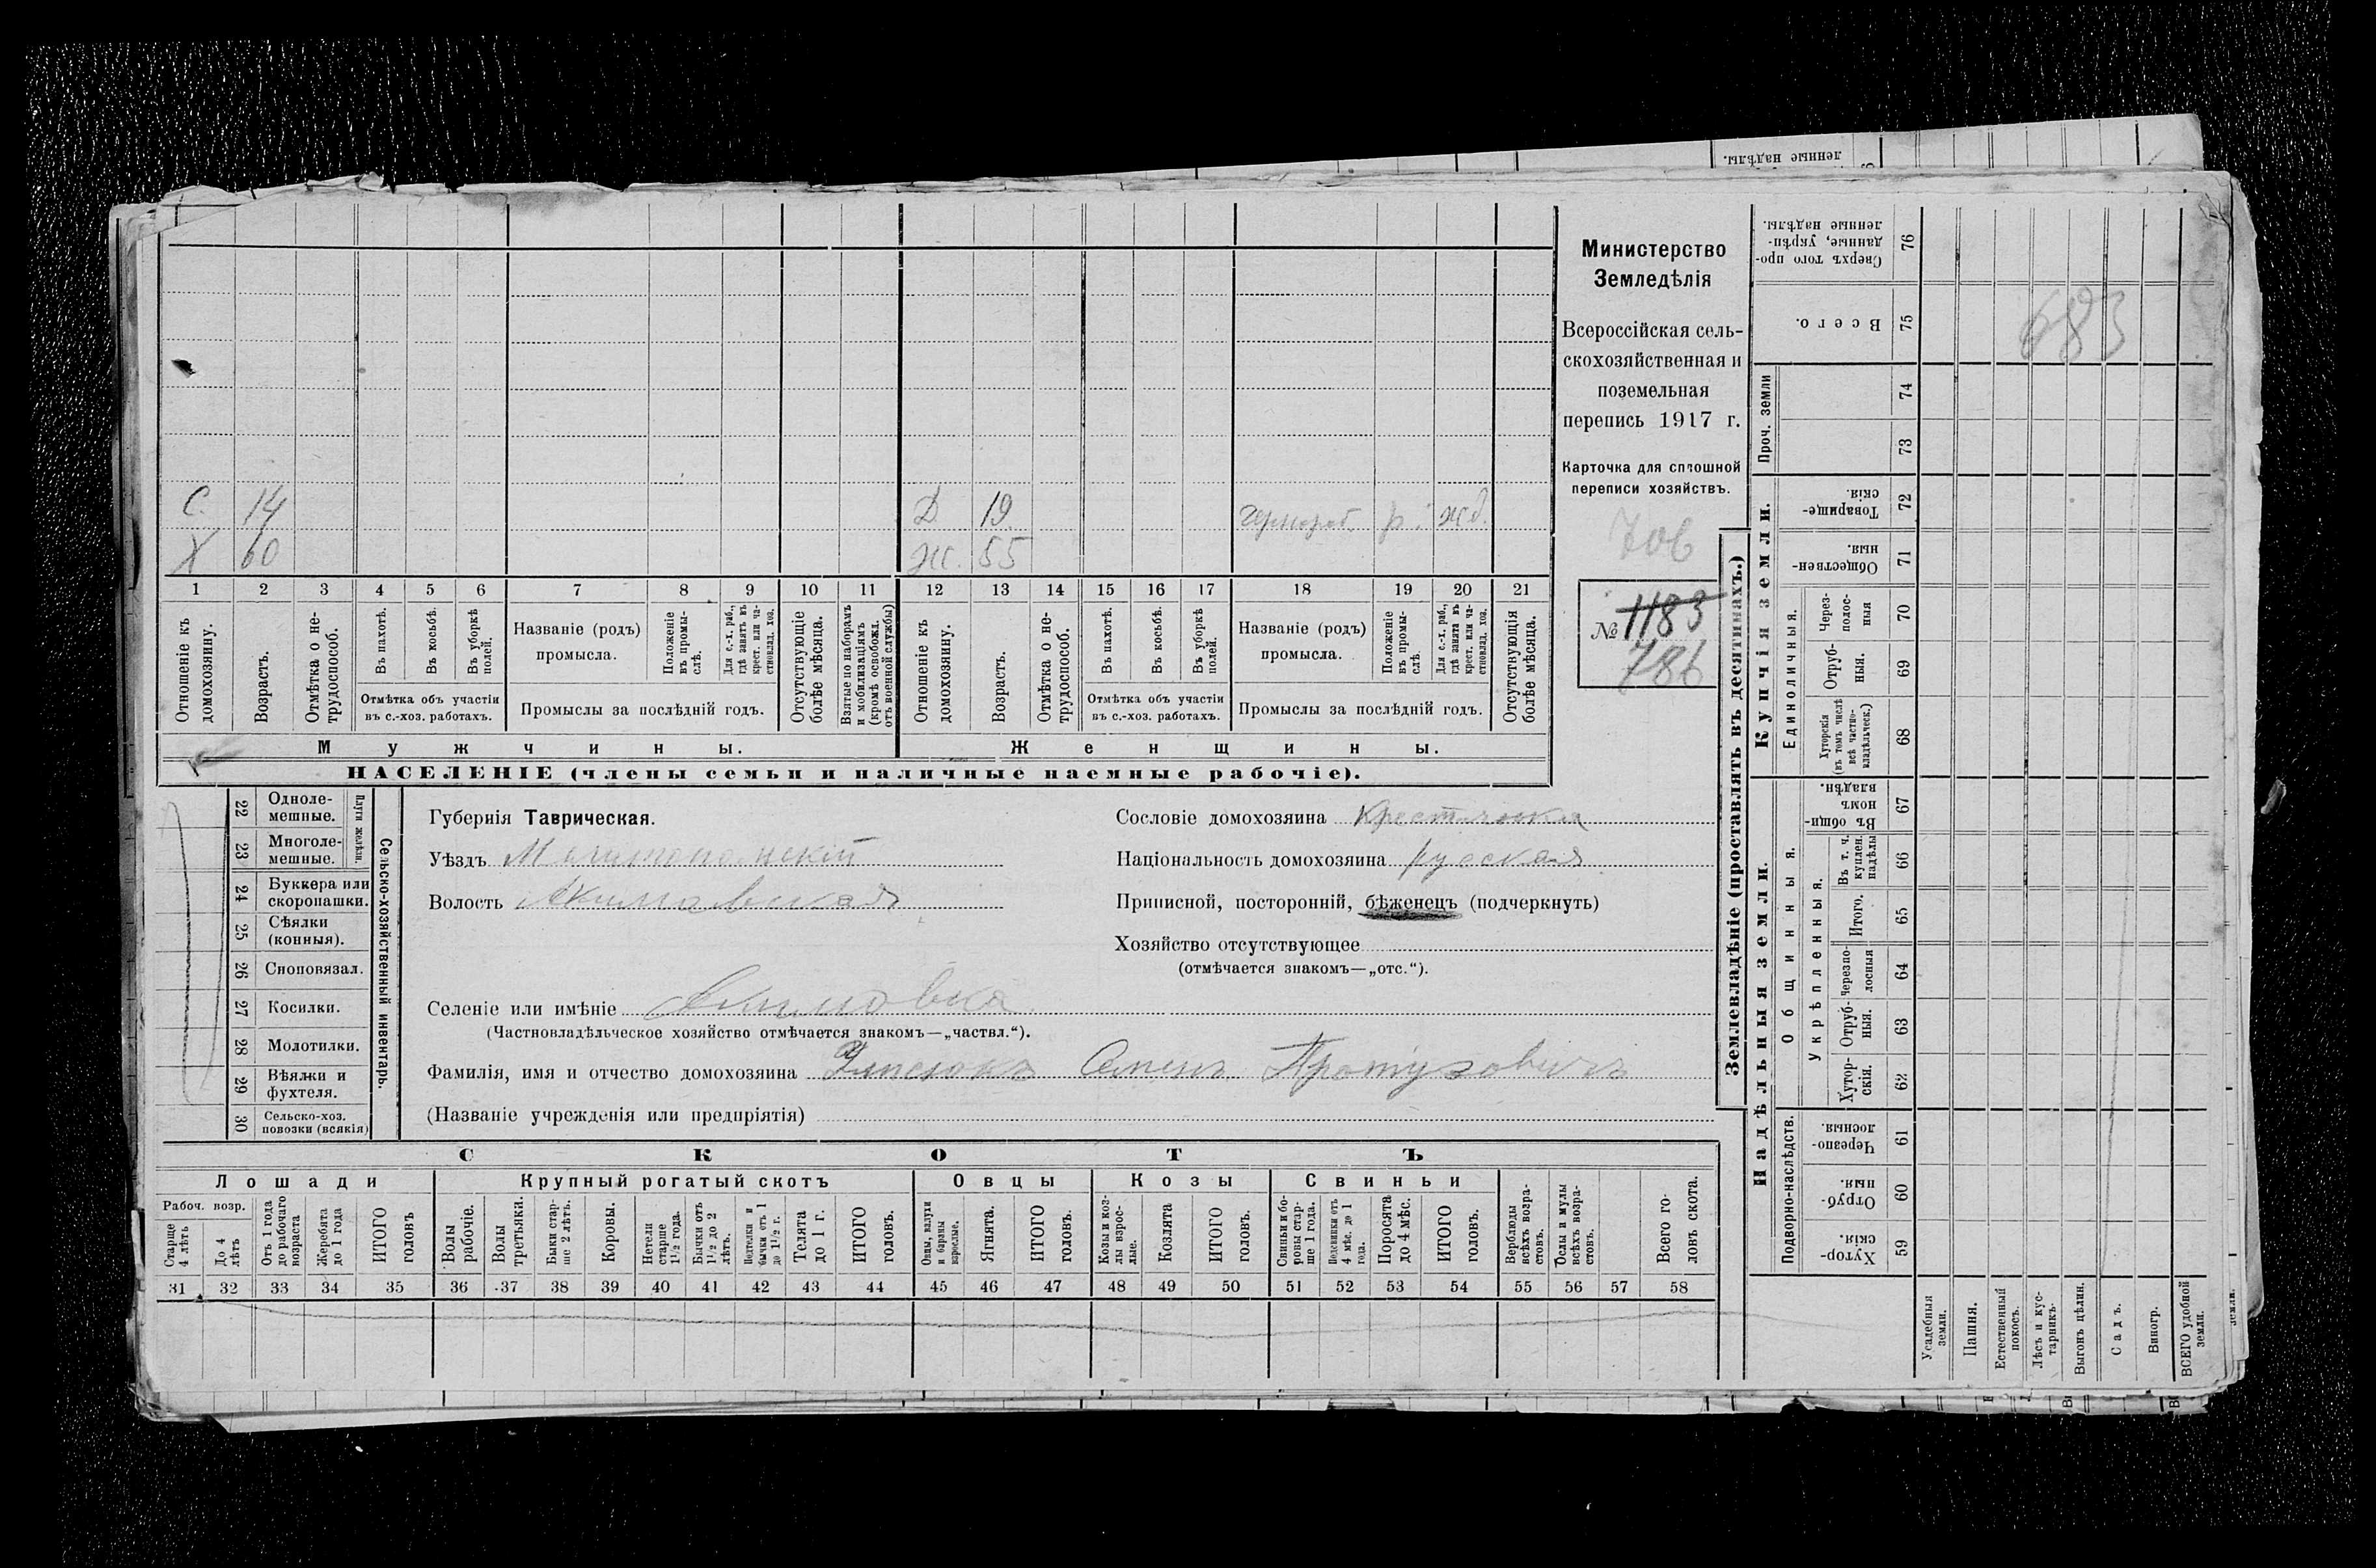 ленные надѣлы.
С. 14
Д. 19. р. жд.
Х 60
Ж. 55
1 2 3 4 5 6 7 8 9 10 11 12 13 14 15 16 17 18 19 20 21
Отношеніе къ домохозяину.
Возрастъ.
Отмѣтка о не-трудоспособ.
Въ пахотѣ.
Въ косьбѣ.
Въ уборкѣ полей.
Отмѣтка объ участіи
въ с.-хоз. работахъ.
Названіе (родъ)
промысла.
Положеніе въ промы-слѣ.
Для с.-х. раб., гдѣ занятъ въ крест. или ча-стновлад. хоз.
Промыслы за послѣдній годъ.
Отсутствующіе болѣе мѣсяца.
Взятые по наборамъ и мобилизаціямъ (кромѣ освобожд. отъ военной службы)
Отношеніе къ домохозяину.
Возрастъ.
Отмѣтка о не-трудоспособ.
Въ пахотѣ.
Въ косьбѣ.
Въ уборкѣ полей.
Отмѣтка объ участіи
въ с.-хоз. работахъ.
Названіе (родъ)
промысла.
Положеніе въ промы-слѣ.
Для с.-х. раб., гдѣ занята въ крест. или ча-стновлад. хоз.
Промыслы за послѣдній годъ.
Отсутствующія болѣе мѣсяца.
Мужчины.
Женщины.
НАСЕЛЕНІЕ (члены семьи и наличные наемные рабочіе).
Министерство
Земледѣлія
Всероссійская сель-
скохозяйственная и
поземельная
перепись 1917 г.
Карточка для сплошной
переписи хозяйствъ.
706
№ 1183
786
22 Одноле-мешные.
23 Многоле-мешные.
Плуги желѣзн.
24 Буккера или скоропашки.
25 Сѣялки (конныя).
26 Сноповязал.
27 Косилки.
28 Молотилки.
29 Вѣялки и фухтеля.
30 Сельско-хоз. повозки (всякія)
Сельско-хозяйственный инвентарь.
Губернія Таврическая.
Уѣздъ Мелитопольскій
Волость Акимовская
Сословіе домохозяина Крестьянка
Національность домохозяина русская
Приписной, посторонній, бѣженецъ (подчеркнуть)
Хозяйство отсутствующее
(отмѣчается знакомъ—„отс.“).
Селеніе или имѣніе Акимовка
(Частновладѣльческое хозяйство отмѣчается знакомъ—„частвл.“).
Фамилія, имя и отчество домохозяина Семенъ
(Названіе учрежденія или предпріятія)
СКОТЪ
Лошади
Крупный рогатый скотъ
Овцы
Козы
Свиньи
Рабоч. возр.
Старше 4 лѣтъ
До 4 лѣтъ
Отъ 1 года до рабочаго возраста
Жеребята до 1 года
ИТОГО головъ
Волы рабочіе.
Волы третьяки.
Быки стар-ше 2 лѣтъ.
Коровы.
Нетели старше 1½ года.
Бычки отъ 1½ до 2 лѣтъ.
Нетелки и бычки отъ 1 до 1½ г.
Телята до 1 г.
ИТОГО головъ.
Овцы, валухи и бараны взрослые.
Ягнята.
ИТОГО головъ.
Козы и коз-лы взрос-лые.
Козлята
ИТОГО головъ.
Свиньи и бо-ровы стар-ше 1 года.
Подсвинки отъ 4 мѣс. до 1 года.
Поросята до 4 мѣс.
ИТОГО головъ.
Верблюды всѣхъ возра-стовъ.
Ослы и мулы всѣхъ возра-стовъ.
Всего го-ловъ скота.
31 32 33 34 35 36 37 38 39 40 41 42 43 44 45 46 47 48 49 50 51 52 53 54 55 56 57 58
Землевладѣніе (проставлять въ десятинахъ.)
Надѣльныя земли.
Купчія земли.
Проч. земли
Подворно-наслѣдств.
Общинныя.
Укрѣпленныя.
Единоличныя.
Сверхъ того про-данные, укрѣп-ленные надѣлы. 76
Всего. 75
74
73
Товарище-скія. 72
Обществен-ныя. 71
Через-полос-ныя 70
Отруб-ныя. 69
Хуторскія (въ томъ числѣ всѣ частно-владѣльческ.) 68
Въ общи-номъ владѣн. 67
Въ т. ч. куплен. надѣлы 66
Итого. 65
Черезпо-лосныя 64
Отруб-ныя. 63
Хутор-скія. 62
Черезпо-лосныя. 61
Отруб-ныя. 60
Хутор-скія. 59
683
Усадебныя земли.
Пашня.
Естественный покосъ.
Лѣсъ и кус-тарникъ.
Выгонъ цѣлин.
Садъ.
Виногр.
ВСЕГО удобной земли.
земли.